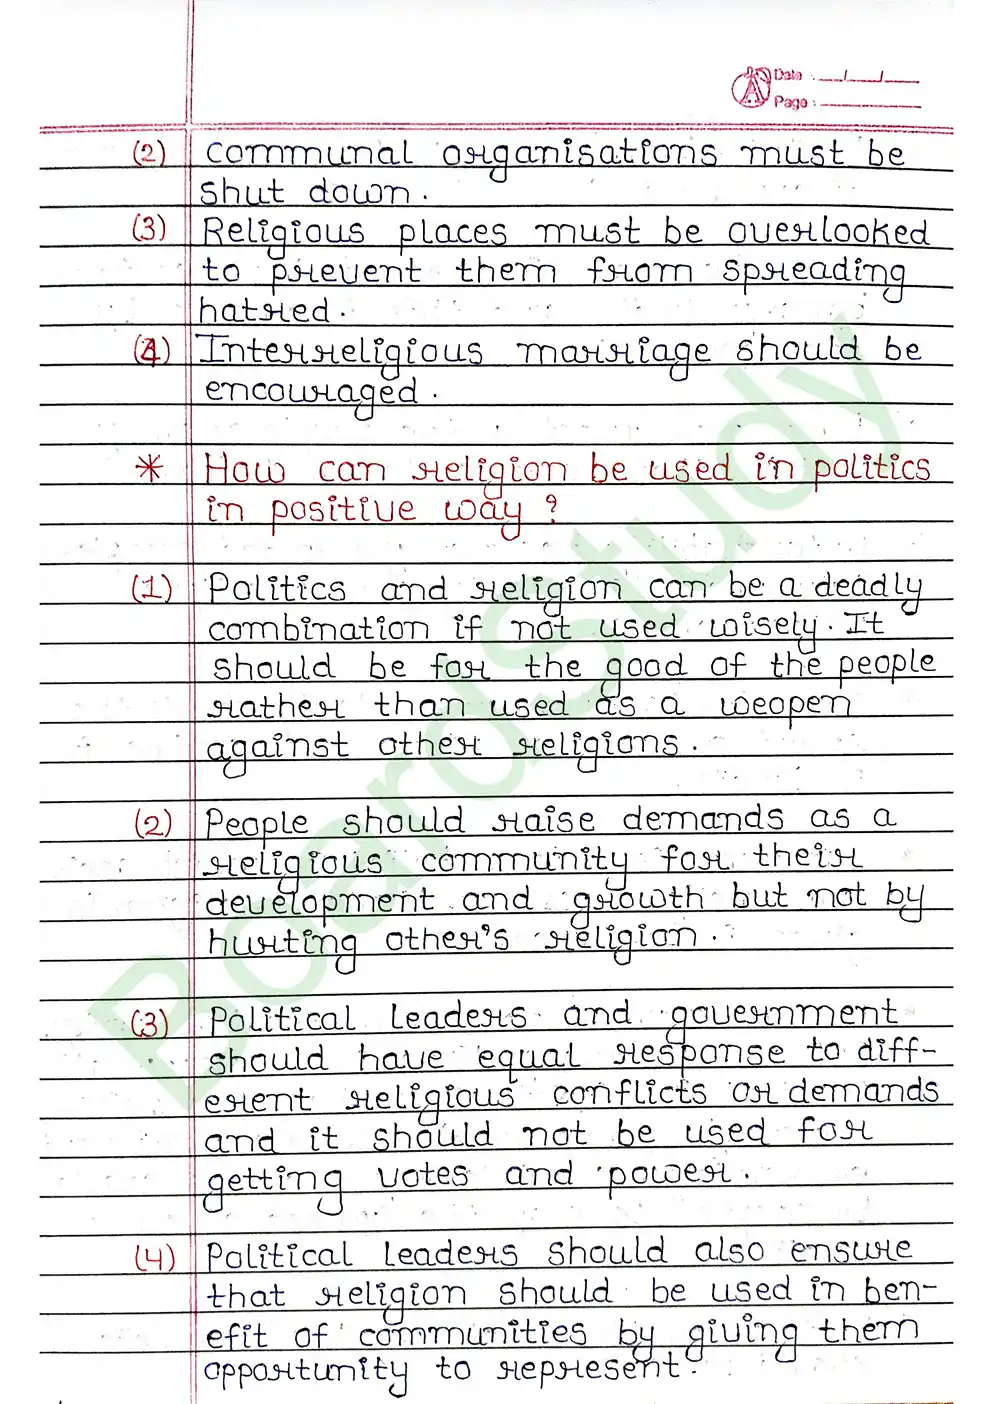 Date : __/__/__
Page : ______
(2) communal organisations must be
shut down.
(3) Religious places must be overlooked
to prevent them from spreading
hatred.
(4) Interreligious marriage should be
encouraged.
* How can religion be used in politics
in positive way?
(1) Politics and religion can be a deadly
combination if not used wisely. It
should be for the good of the people
rather than used as a weopen
against other religions.
(2) People should raise demands as a
religious community for their
development and growth but not by
hurting other's religion.
(3) Political leaders and government
should have equal response to diff-
erent religious conflicts or demands
and it should not be used for
getting votes and power.
(4) Political leaders should also ensure
that religion should be used in ben-
efit of communities by giving them
opportunity to represent.
BoardStudy